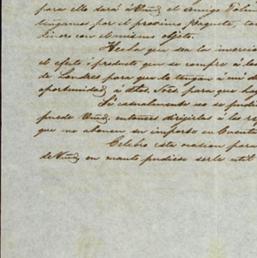 para ello dará á Vmd, el amigo
tengamos por el proximo Paquete,
dinero con el mismo objeto.
Hecha que sea la inversion
el efecto ó producto que se compre á
de Londres para que lo tengan á mi
oportunidad, á dhos Sres para que
Si casualmente no se
puede Vmd, entonces dirigirlas á los
que no abonen su importe en Cuenta
Celebro esta ocasion para
de Vmd, en cuanto pudiese serle util